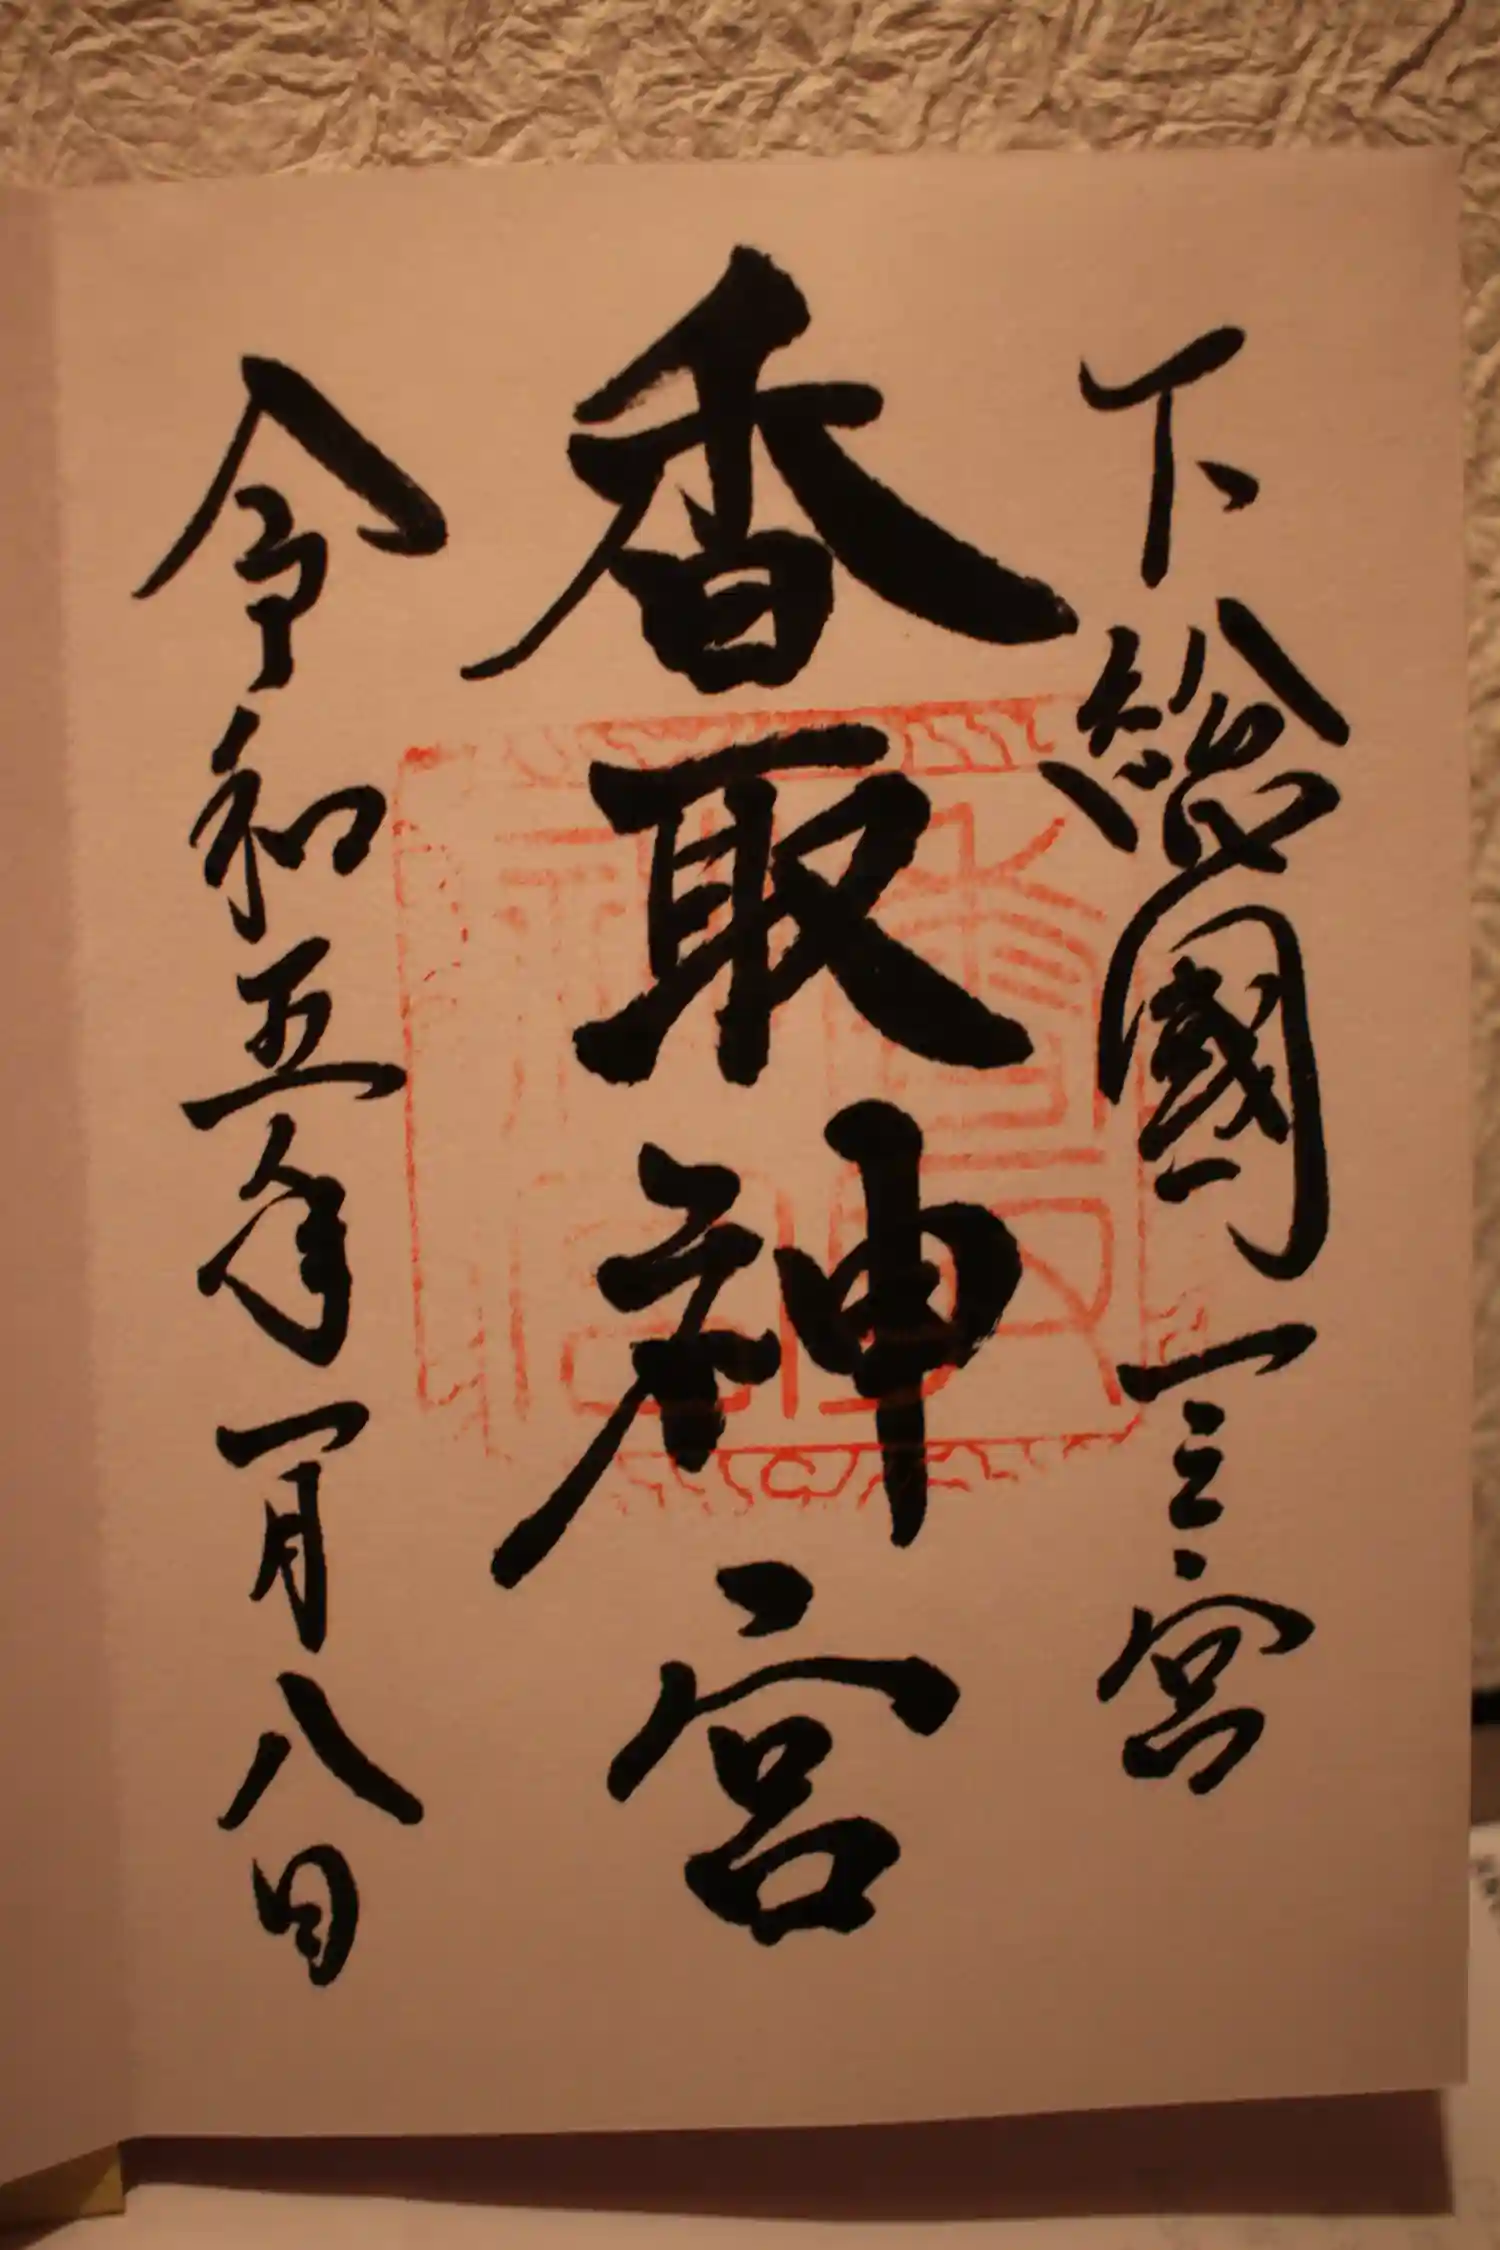 下総國一之宮
香取神宮
令和五年一月八日